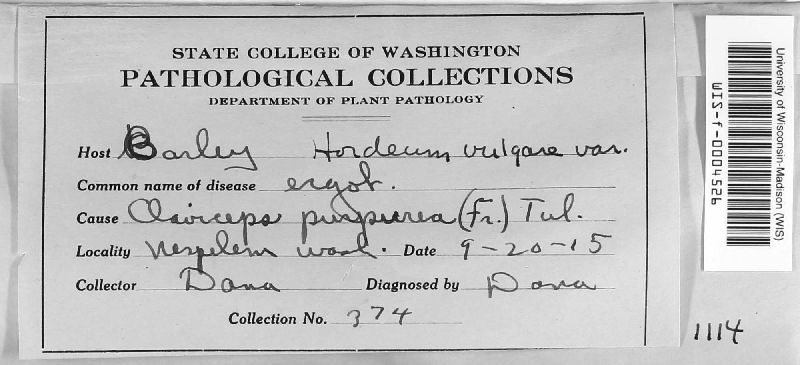 STATE COLLEGE OF WASHINGTON
PATHOLOGICAL COLLECTIONS
DEPARTMENT OF PLANT PATHOLOGY
Host Barley Hordeum vulgare var.
Common name of disease ergot.
Cause Claviceps purpurea (Fr.) Tul.
Locality Nespelem Wash. Date 9-20-15
Collector Dana Diagnosed by Dana
Collection No. 374
University of Wisconsin-Madison (WIS)
WIS-f-0004526
1114